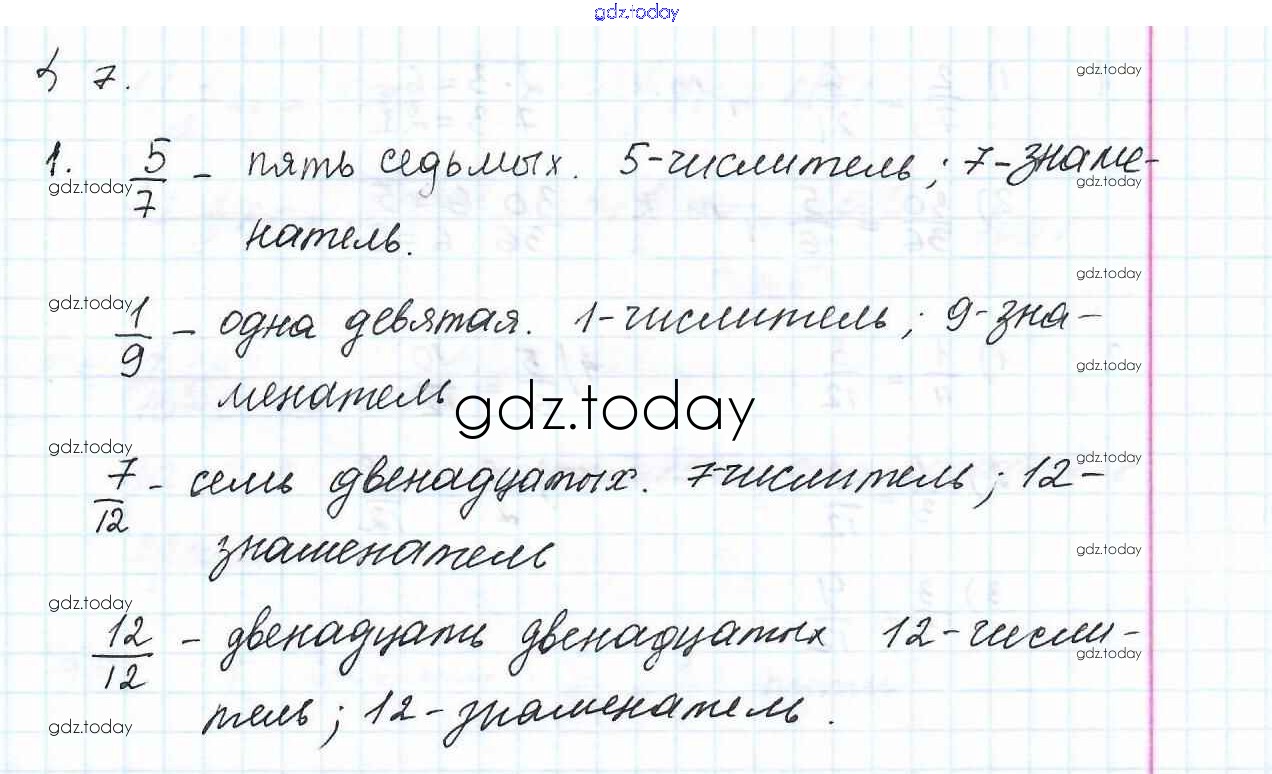 gdz.today
§ 7.
gdz.today
1. 5/7 - пять седьмых. 5-числитель; 7-знаме-
gdz.today
gdz.today
натель.
gdz.today
gdz.today
1/9 - одна девятая. 1-числитель; 9-зна-
gdz.today
менатель
gdz.today
gdz.today
7/12 - семь двенадцатых. 7-числитель; 12-
gdz.today
знаменатель
gdz.today
gdz.today
12/12 - двенадцать двенадцатых 12-числи-
gdz.today
тель; 12-знаменатель.
gdz.today